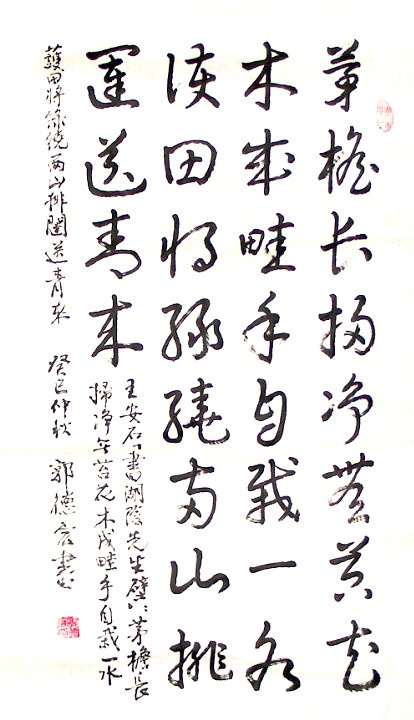 茅檐长扫净無苔花
木成畦手自栽一水
護田将绿绕两山排
闼送青来
王安石書湖陰先生壁茅檐長
掃净無苔花木成畦手自栽一水
護田将绿绕两山排闥送青来 癸巳仲秋 郭德宏書